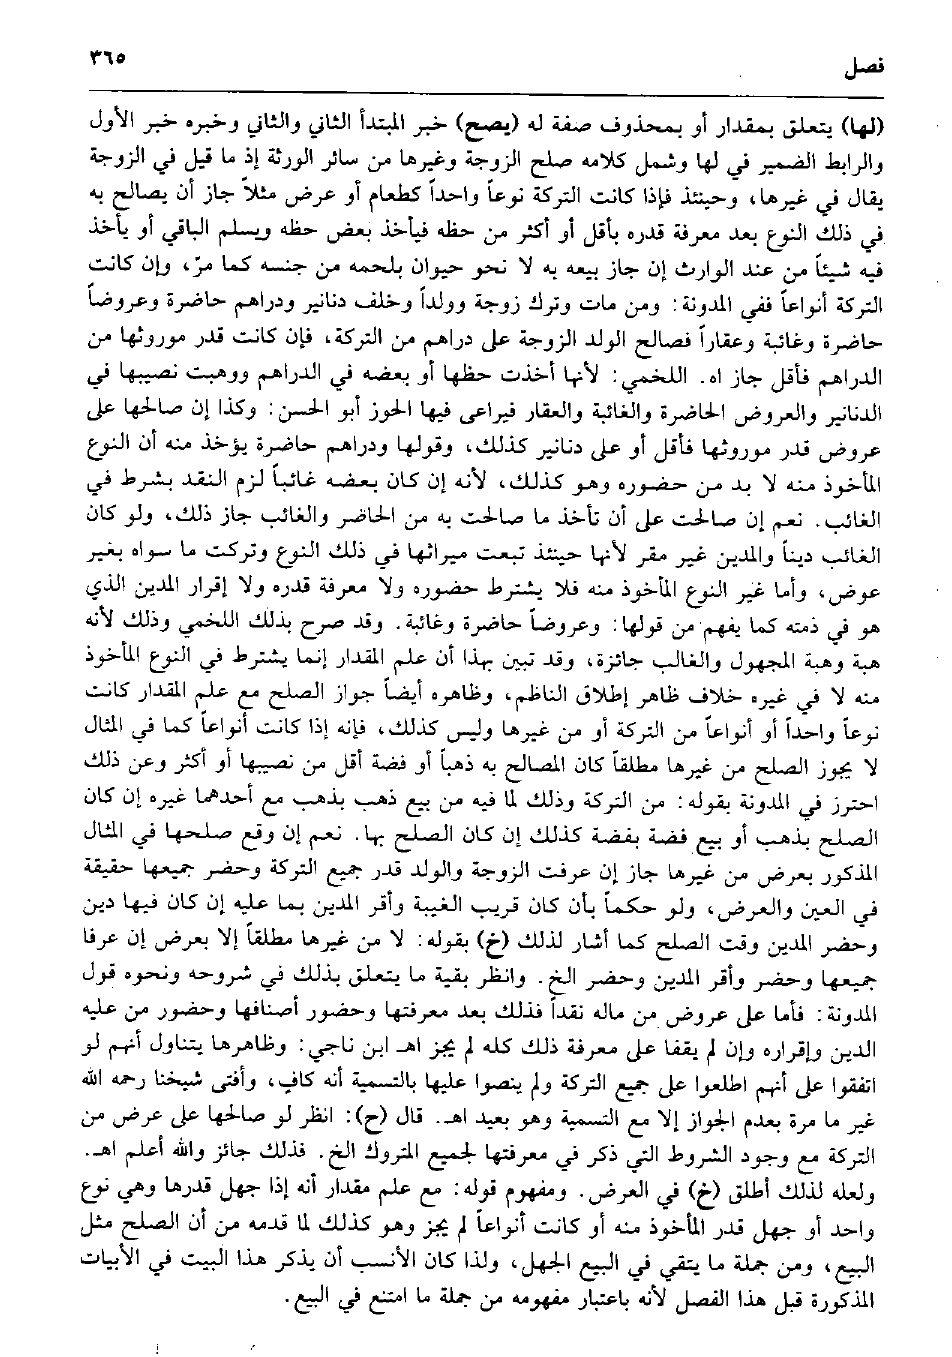 فصل
٣٦٥
(لها) يتعلق بمقدار أو بمحذوف صفة له (يصح) خبر المبتدأ الثاني والثاني وخبره خبر الأول
والرابط الضمير في لها وشمل كلامه صلح الزوجة وغيرها من سائر الورثة إذ ما قيل في الزوجة
يقال في غيرها، وحينئذ فإذا كانت التركة نوعاً واحداً كطعام أو عرض مثلاً جاز أن يصالح به
في ذلك النوع بعد معرفة قدره بأقل أو أكثر من حظه فيأخذ بعض حظه ويسلم الباقي أو يأخذ
فيه شيئاً من عند الوارث إن جاز بيعه به لا نحو حيوان بلحمه من جنسه كما مرّ، وإن كانت
التركة أنواعاً ففي المدونة: ومن مات وترك زوجة وولداً وخلف دنانير ودراهم حاضرة وعروضاً
حاضرة وغائبة وعقاراً فصالح الولد الزوجة على دراهم من التركة، فإن كانت قدر موروثها من
الدراهم فأقل جاز اه. اللخمي: لأنها أخذت حظها أو بعضه في الدراهم ووهبت نصيبها في
الدنانير والعروض الحاضرة والغائبة والعقار فيراعى فيها الحوز أبو الحسن: وكذا إن صالحها على
عروض قدر موروثها فأقل أو على دنانير كذلك، وقولها ودراهم حاضرة يؤخذ منه أن النوع
المأخوذ منه لا بد من حضوره وهو كذلك، لأنه إن كان بعضه غائباً لزم النقد بشرط في
الغائب. نعم إن صالحت على أن تأخذ ما صالحت به من الحاضر والغائب جاز ذلك، ولو كان
الغائب ديناً والمدين غير مقر لأنها حينئذ تبعت ميراثها في ذلك النوع وتركت ما سواه بغير
عوض، وأما غير النوع المأخوذ منه فلا يشترط حضوره ولا معرفة قدره ولا إقرار المدين الذي
هو في ذمته كما يفهم من قولها: وعروضاً حاضرة وغائبة. وقد صرح بذلك اللخمي وذلك لأنه
هبة وهبة المجهول والغالب جائزة، وقد تبين بهذا أن علم المقدار إنما يشترط في النوع المأخوذ
منه لا في غيره خلاف ظاهر إطلاق الناظم، وظاهره أيضاً جواز الصلح مع علم المقدار كانت
نوعاً واحداً أو أنواعاً من التركة أو من غيرها وليس كذلك، فإنه إذا كانت أنواعاً كما في المثال
لا يجوز الصلح من غيرها مطلقاً كان المصالح به ذهباً أو فضة أقل من نصيبها أو أكثر وعن ذلك
احترز في المدونة بقوله: من التركة وذلك لما فيه من بيع ذهب بذهب مع أحدهما غيره إن كان
الصلح بذهب أو بيع فضة بفضة كذلك إن كان الصلح بها. نعم إن وقع صلحها في المثال
المذكور بعرض من غيرها جاز إن عرفت الزوجة والولد قدر جميع التركة وحضر جميعها حقيقة
في العين والعرض، ولو حكماً بأن كان قريب الغيبة وأقر المدين بما عليه إن كان فيها دين
وحضر المدين وقت الصلح كما أشار لذلك (خ) بقوله: لا من غيرها مطلقاً إلا بعرض إن عرفا
جميعها وحضر وأقر المدين وحضر الخ. وانظر بقية ما يتعلق بذلك في شروحه ونحوه قول
المدونة: فأما على عروض من ماله نقداً فذلك بعد معرفتها وحضور أصنافها وحضور من عليه
الدين وإقراره وإن لم يقفا على معرفة ذلك كله لم يجز اهـ ابن ناجي: وظاهرها يتناول أنهم لو
اتفقوا على أنهم اطلعوا على جميع التركة ولم ينصوا عليها بالتسمية أنه كاف، وأفتى شيخنا رحمه الله
غير ما مرة بعدم الجواز إلا مع التسمية وهو بعيد اهـ. قال (ح): انظر لو صالحها على عرض من
التركة مع وجود الشروط التي ذكر في معرفتها لجميع المتروك الخ. فذلك جائز والله أعلم اهـ.
ولعله لذلك أطلق (خ) في العرض. ومفهوم قوله: مع علم مقدار أنه إذا جهل قدرها وهي نوع
واحد أو جهل قدر المأخوذ منه أو كانت أنواعاً لم يجز وهو كذلك لما قدمه من أن الصلح مثل
البيع، ومن جملة ما يتقي في البيع الجهل، ولذا كان الأنسب أن يذكر هذا البيت في الأبيات
المذكورة قبل هذا الفصل لأنه باعتبار مفهومه من جملة ما امتنع في البيع.